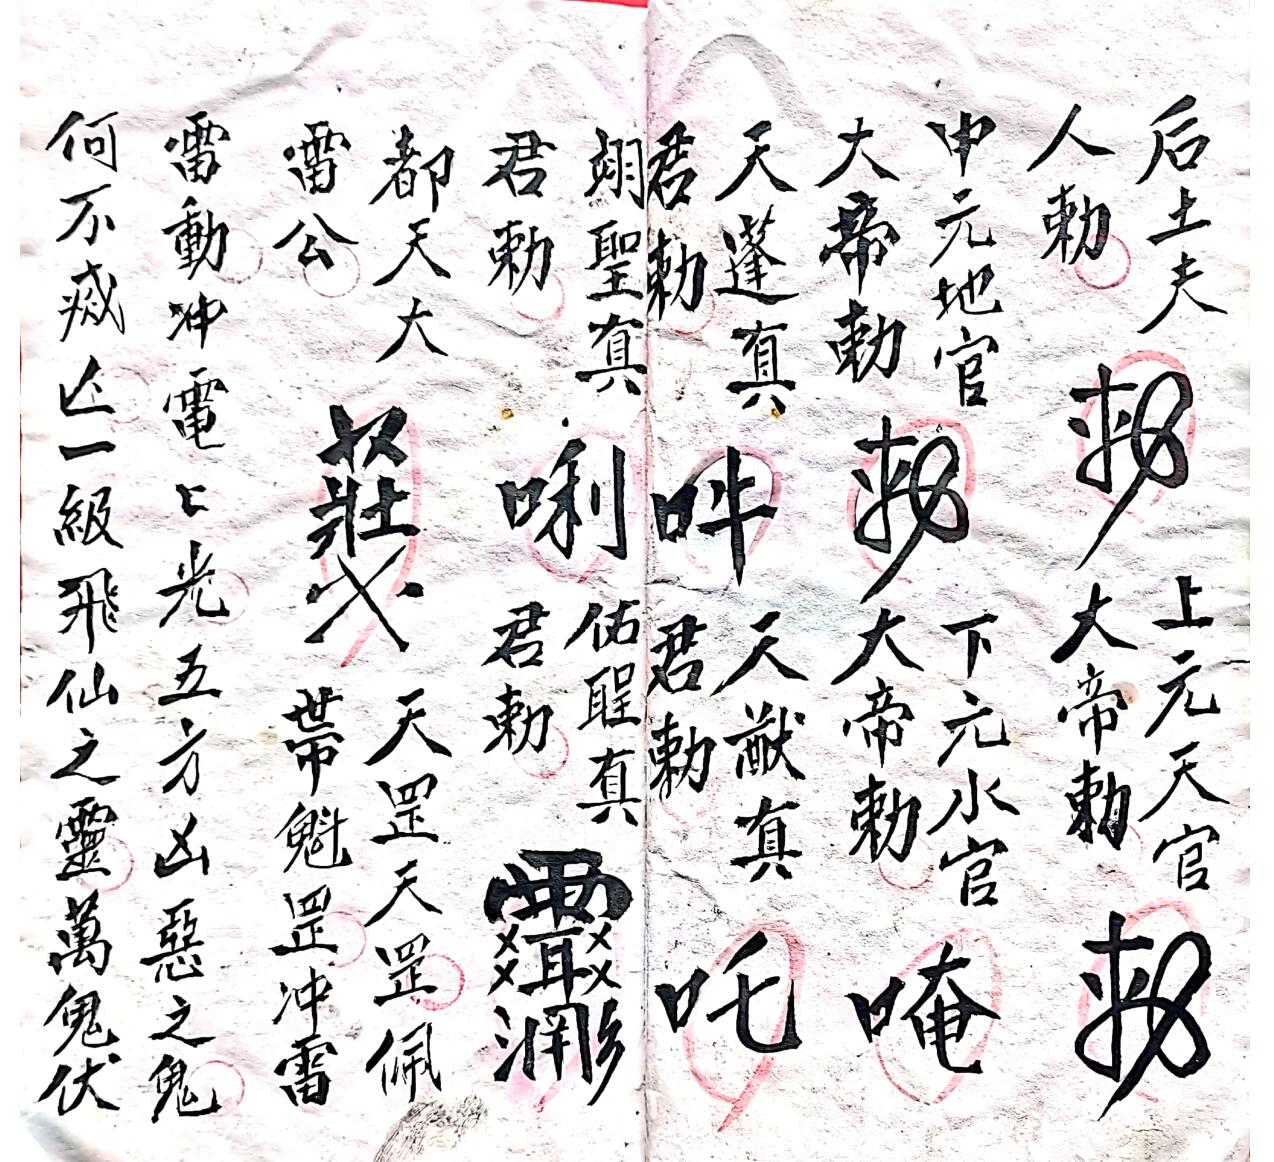 后土夫
人勅
勅
上元天官
大帝勅
勅
中元地官
大帝勅
勅
下元水官
大帝勅
唵
天蓬真
君勅
吽
天猷真
君勅
吒
翊聖真
君勅
唎
佑聖真
君勅
都天大
雷公
天罡天罡佩
帶魁罡冲雷
雷動冲電〻光五方凶惡之鬼
何不滅亡一級飛仙之靈萬鬼伏